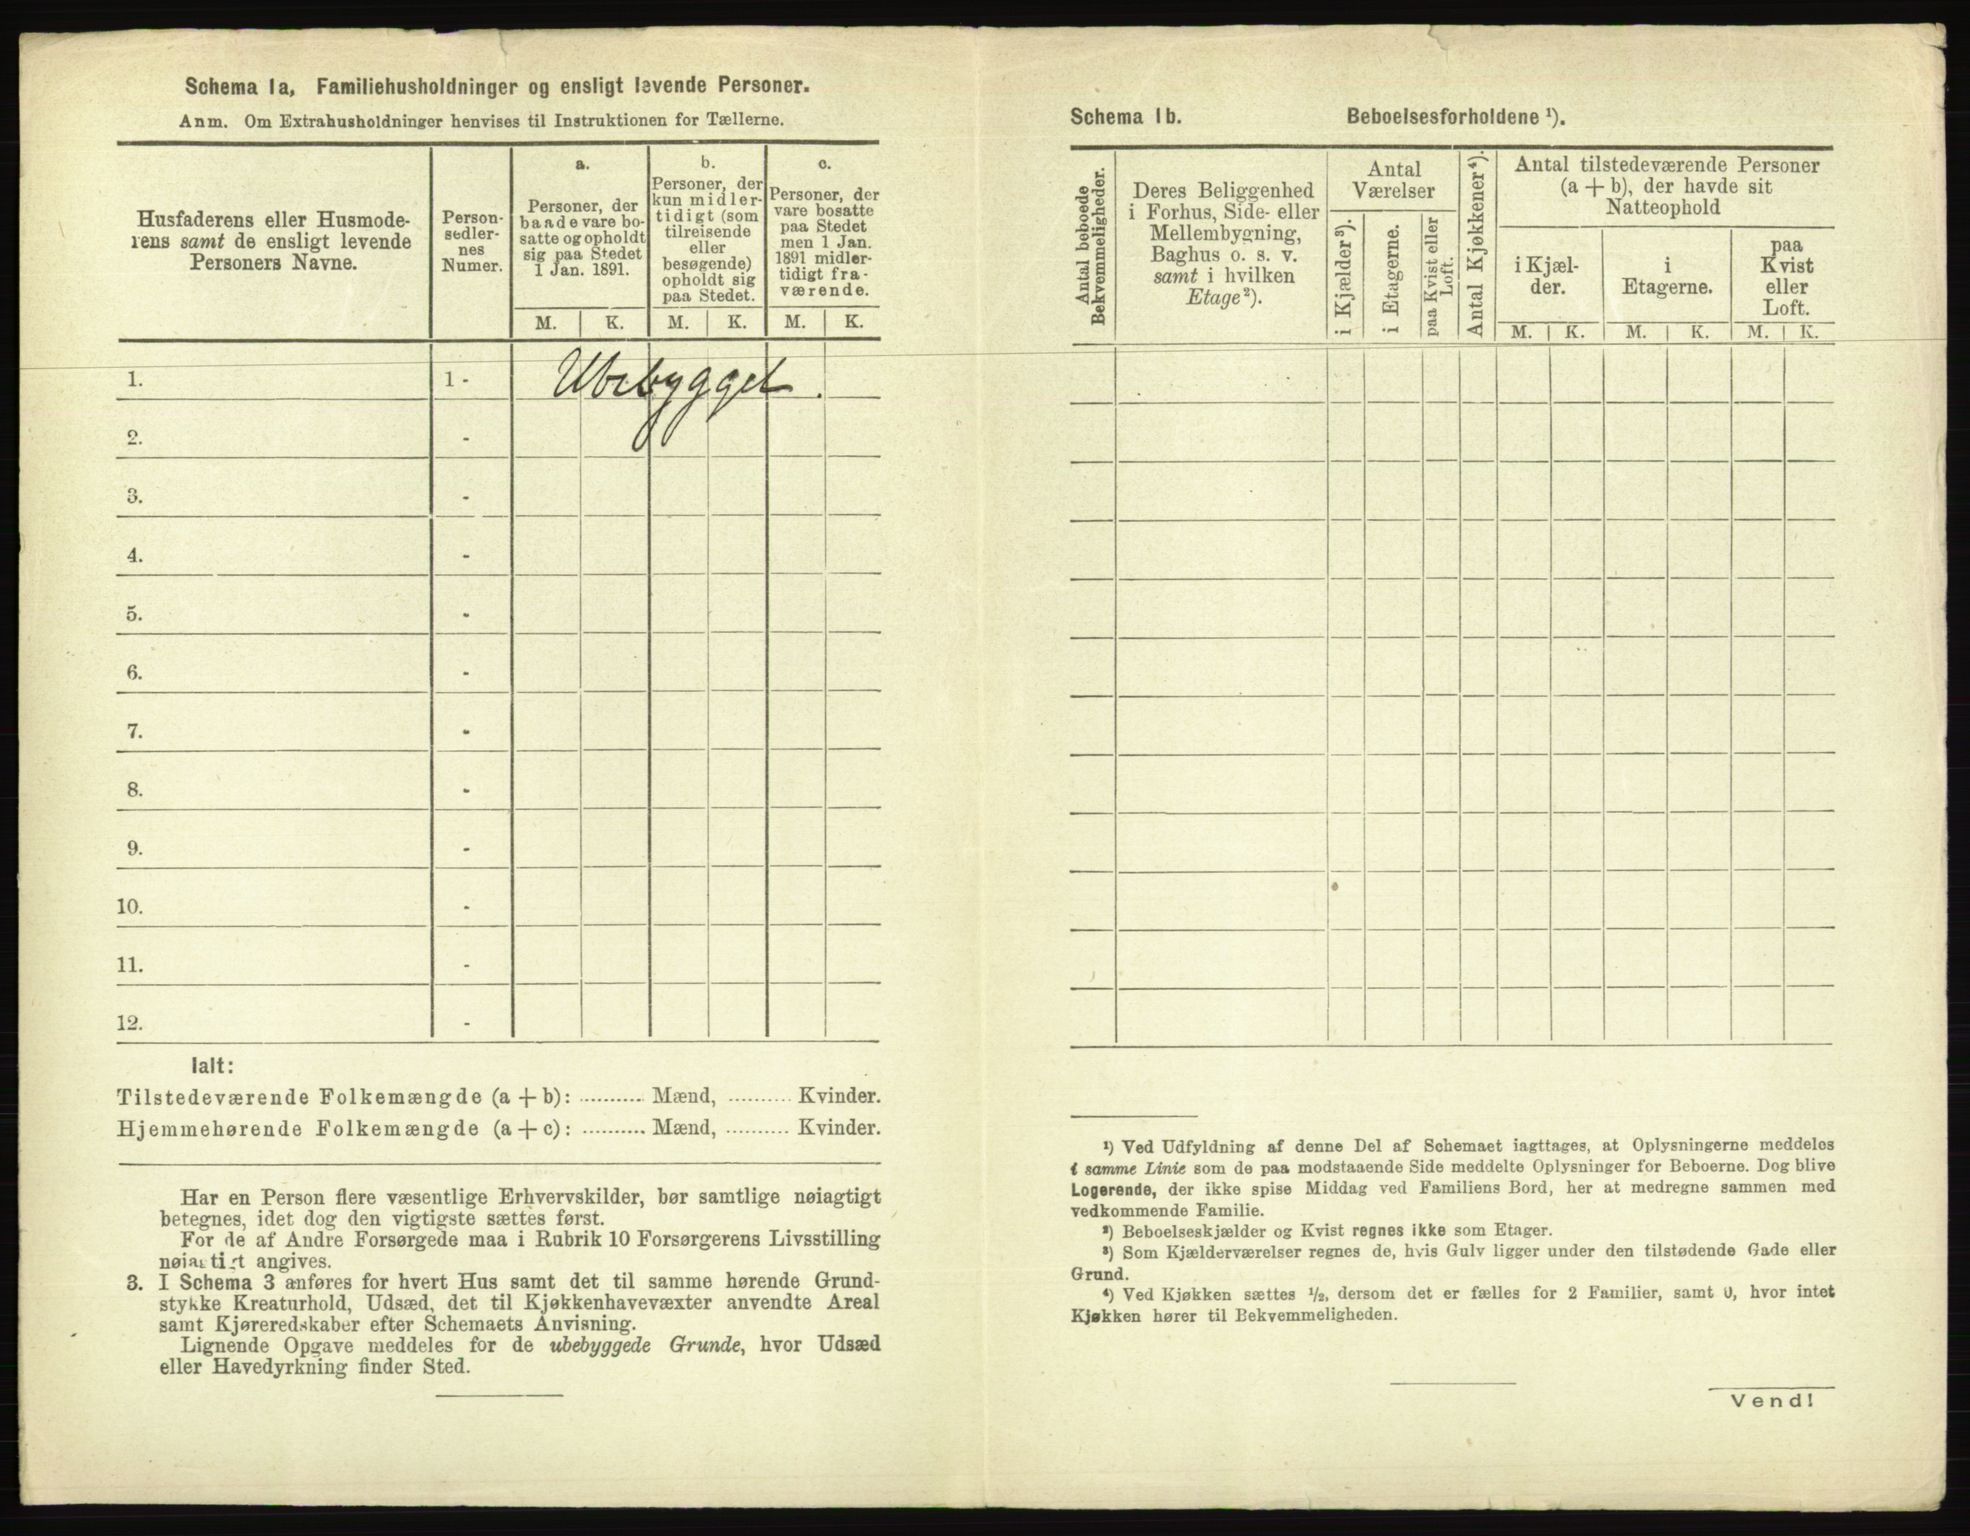 Schema 1a, Familiehusholdninger og ensligt levende Personer.
Anm. Om Extrahusholdninger henvises til Instruktionen for Tællerne.
Husfaderens eller Husmode-
rens samt de ensligt levende
Personers Navne.
Person-
sedler-
nes
Numer.
a.
Personer, der
baade vare bo-
satte og opholdt
sig paa Stedet
1 Jan. 1891.
b.
Personer, der
kun midler-
tidigt (som
tilreisende
eller
besøgende)
opholdt sig
paa Stedet.
c.
Personer, der
vare bosatte
paa Stedet
men 1 Jan.
1891 midler-
tidigt fra-
værende.
M. K. M. K. M. K.
1. 1 - Ubebygget.
2. -
3. -
4. -
5. -
6. -
7. -
8. -
9. -
10. -
11. -
12. -
Ialt:
Tilstedeværende Folkemængde (a + b): .......... Mænd, .......... Kvinder.
Hjemmehørende Folkemængde (a + c): .......... Mænd, .......... Kvinder.
Har en Person flere væsentlige Erhvervskilder, bør samtlige nøiagtigt
betegnes, idet dog den vigtigste sættes først.
For de af Andre Forsørgede maa i Rubrik 10 Forsørgerens Livsstilling
nøiagtigt angives.
3. I Schema 3 anføres for hvert Hus samt det til samme hørende Grund-
stykke Kreaturhold, Udsæd, det til Kjøkkenhavevæxter anvendte Areal
samt Kjøreredskaber efter Schemaets Anvisning.
Lignende Opgave meddeles for de ubebyggede Grunde, hvor Udsæd
eller Havedyrkning finder Sted.
Schema 1b. Beboelsesforholdene ¹).
Antal beboede
Bekvemmeligheder.
Deres Beliggenhed
i Forhus, Side- eller
Mellembygning,
Baghus o. s. v.
samt i hvilken
Etage²).
Antal
Værelser
i Kjælder³).
i Etagerne.
paa Kvist eller
Loft.
Antal Kjøkkener⁴).
Antal tilstedeværende Personer
(a + b), der havde sit
Natteophold
i Kjæl-
der.
i
Etagerne.
paa
Kvist
eller
Loft.
M. K. M. K. M. K.
¹) Ved Udfyldning af denne Del af Schemaet iagttages, at Oplysningerne meddeles
i samme Linie som de paa modstaaende Side meddelte Oplysninger for Beboerne. Dog blive
Logerende, der ikke spise Middag ved Familiens Bord, her at medregne sammen med
vedkommende Familie.
²) Beboelseskjælder og Kvist regnes ikke som Etager.
³) Som Kjælderværelser regnes de, hvis Gulv ligger under den tilstødende Gade eller
Grund.
⁴) Ved Kjøkken sættes ½, dersom det er fælles for 2 Familier, samt 0, hvor intet
Kjøkken hører til Bekvemmeligheden.
Vend!